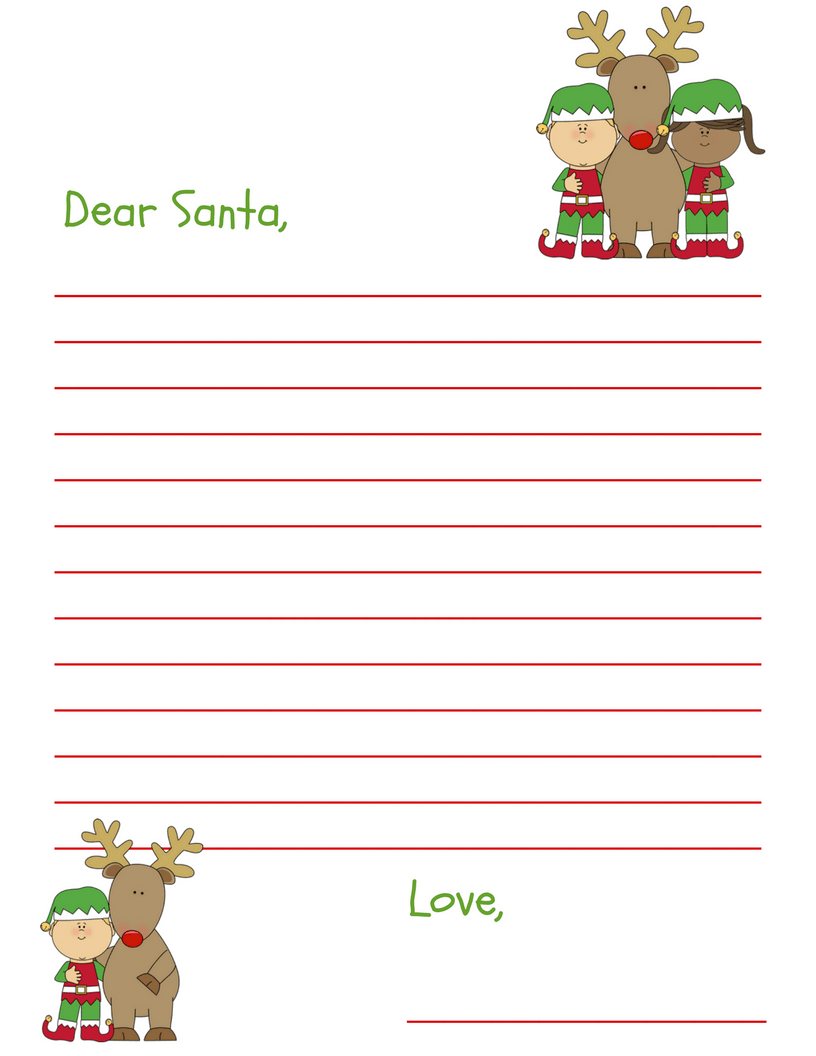 Dear Santa,
Love,